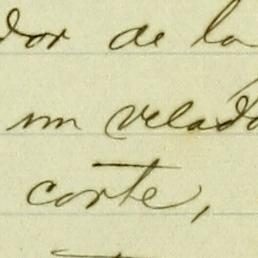 dor de la
un velado
corte,